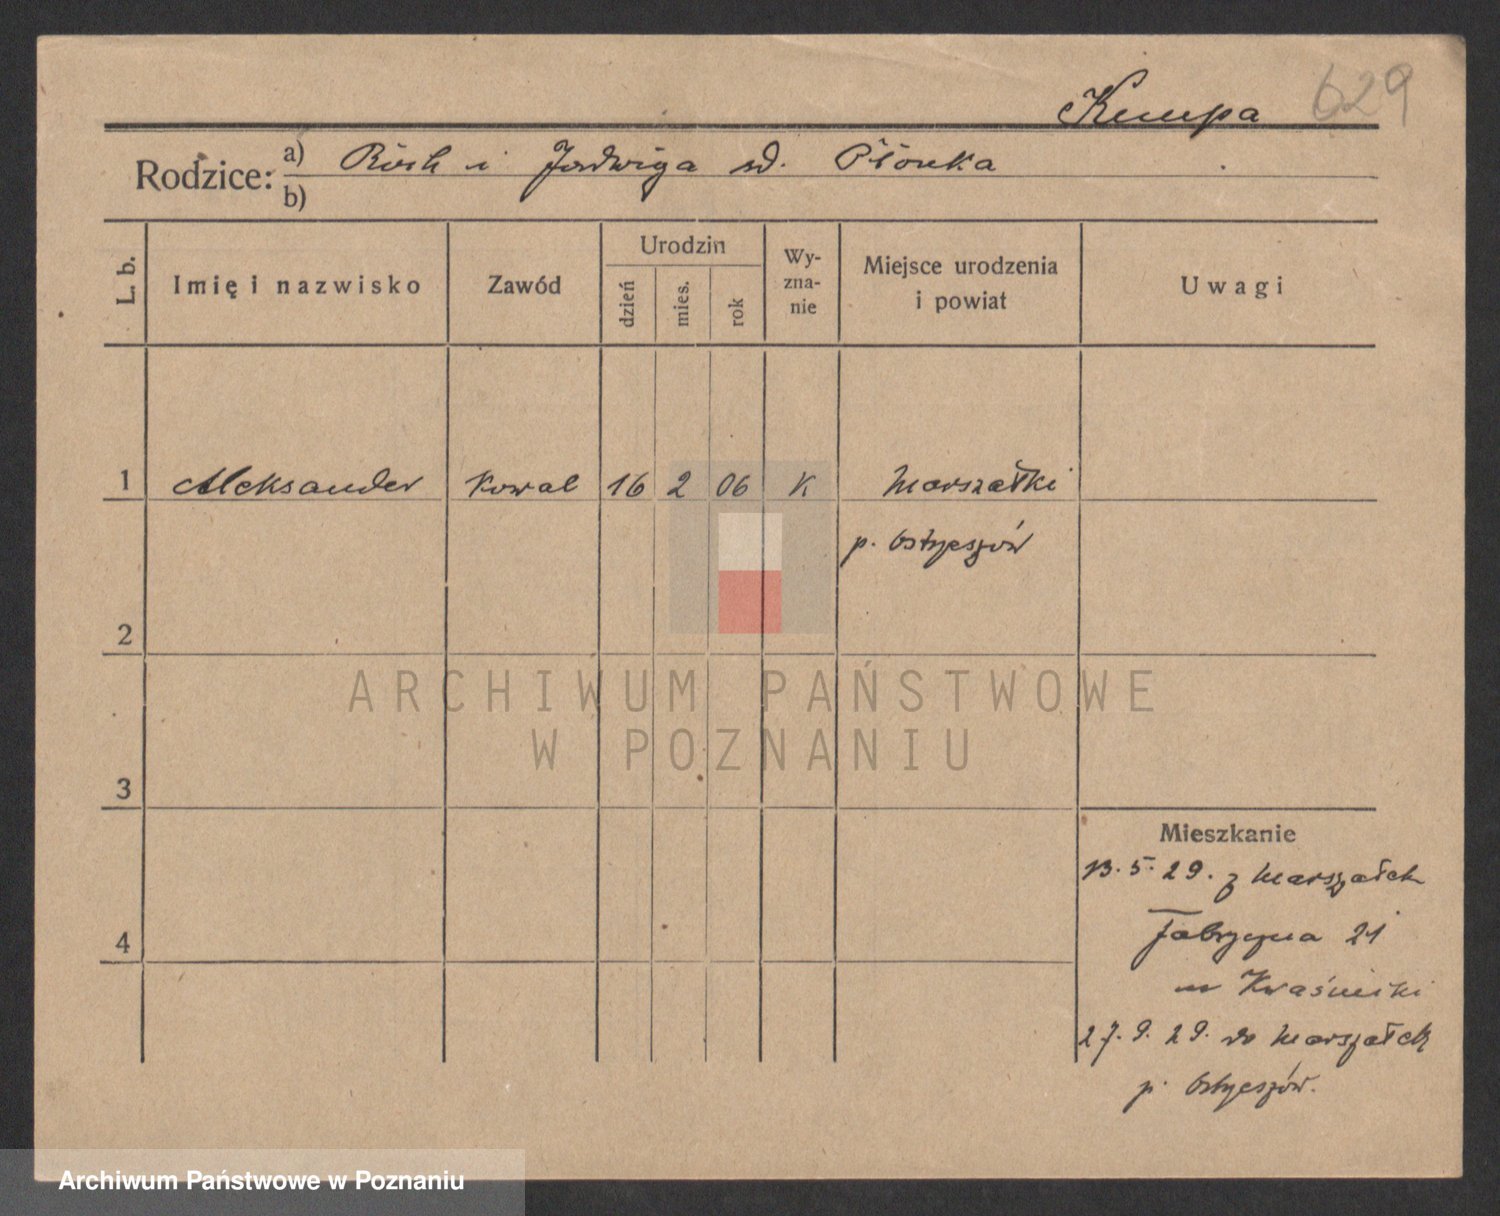 Kempa 629
Rodzice: a) Roch i Jadwiga
b)
L. b. Imię i nazwisko Zawód Urodzin dzień mies. rok Wyznanie Miejsce urodzenia i powiat Uwagi
1 Aleksander Kowal 16 2 06 K Marszałki
p. Ostrzeszów
2
ARCHIWUM PAŃSTWOWE
W POZNANIU
3
Mieszkanie
13.5.29. z Marszałek
4 Fabryczna 21
27.9.29. do Marszałek
p. Ostrzeszów.
Archiwum Państwowe w Poznaniu